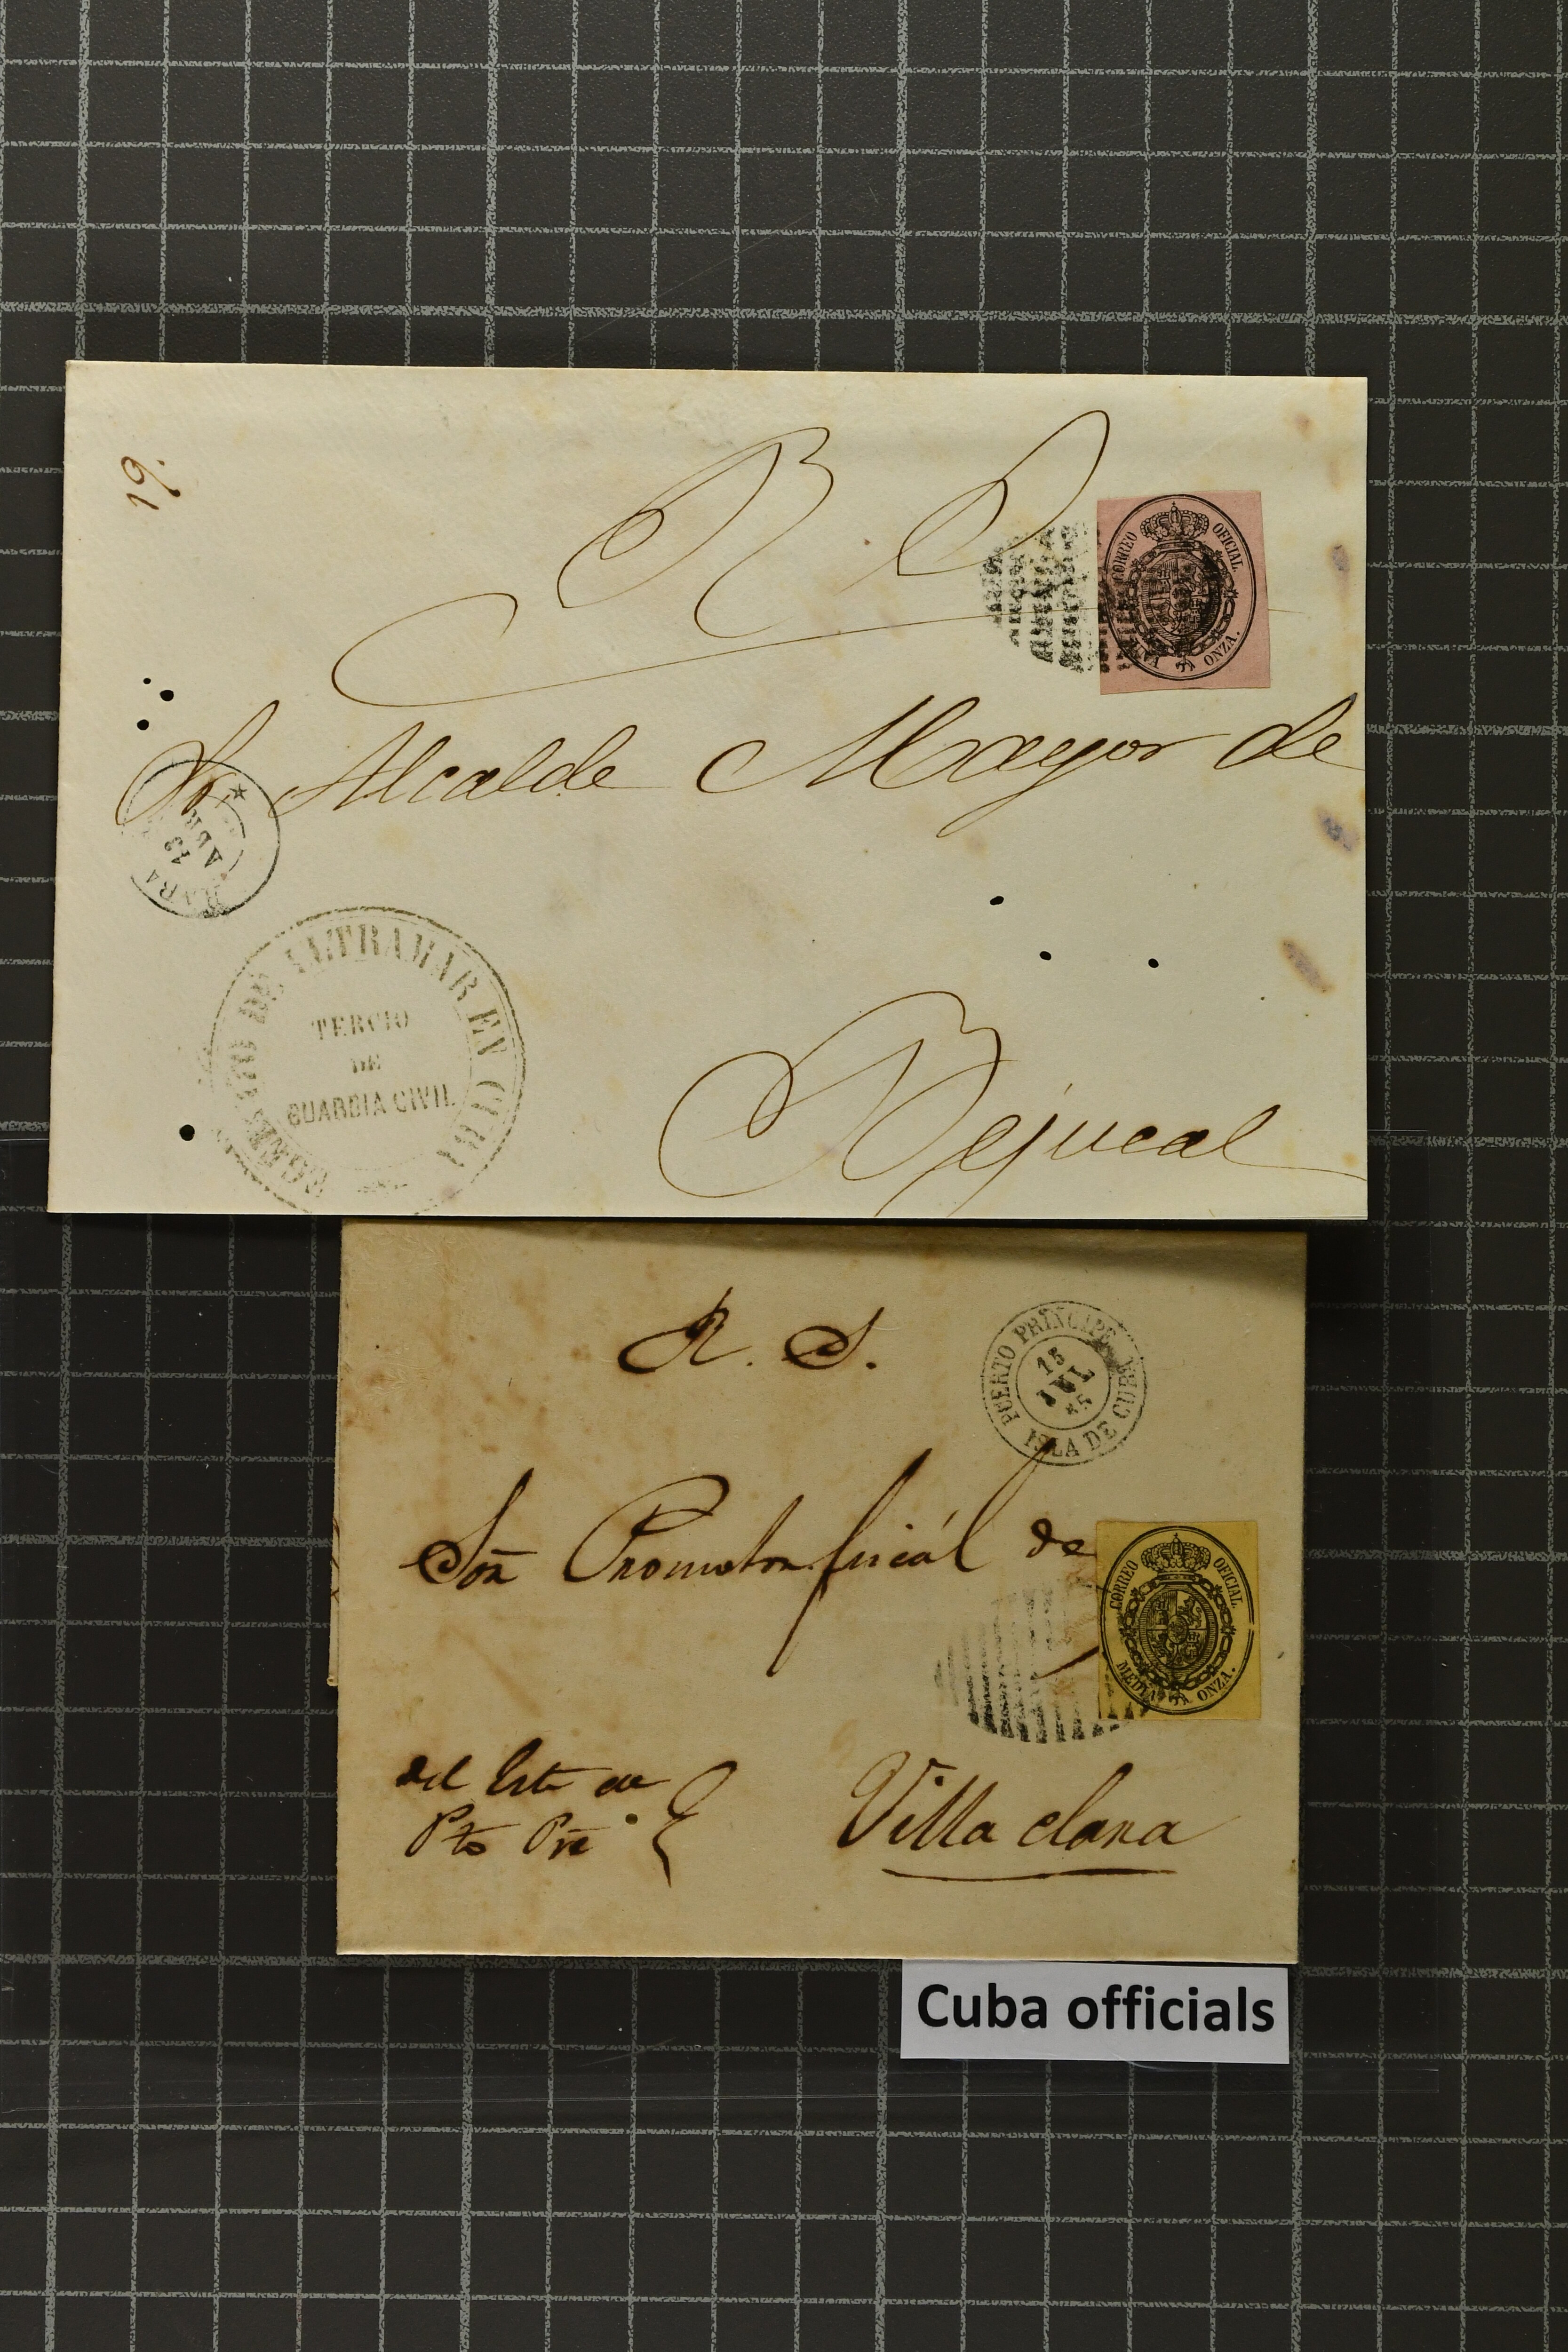 19.
R S
CORREO OFICIAL
UNA ONZA.
Sr Alcalde Mayor de
13
ABR
EGERCITO DE ULTRAMAR EN CUBA
TERCIO
DE
GUARDIA CIVIL
Bejucal
R. S.
PUERTO PRINCIPE
15
JUL
65
ISLA DE CUBA
Sor Promotor fiscál de
CORREO OFICIAL
MEDIA ONZA.
del Este de
Pto Pre
Villa clara
Cuba officials